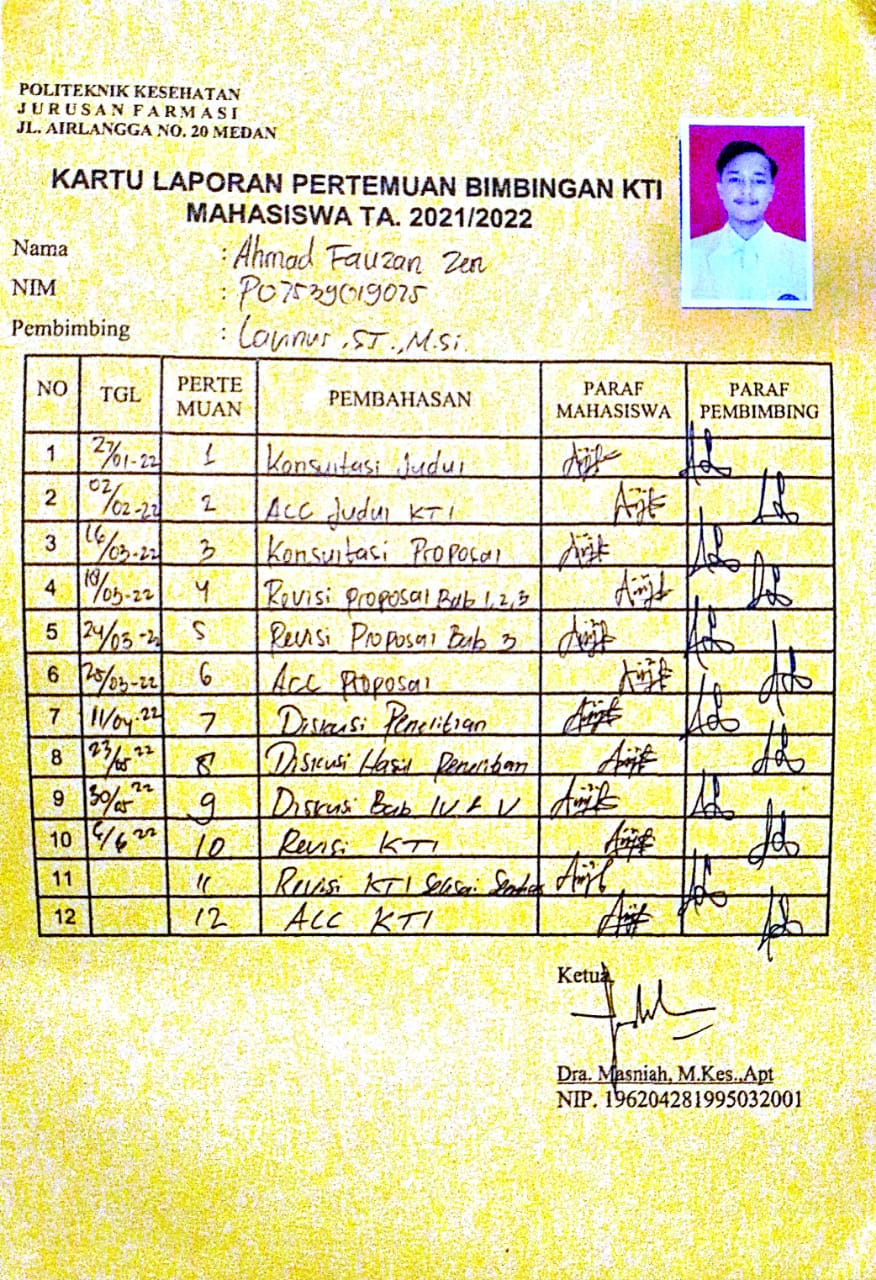 POLITEKNIK KESEHATAN
JURUSAN FARMASI
JL. AIRLANGGA NO. 20 MEDAN
KARTU LAPORAN PERTEMUAN BIMBINGAN KTI
MAHASISWA TA. 2021/2022
Nama : Ahmad Fauzan Zen
NIM : P07539019075
Pembimbing : Lavinur, ST., M.Si.
NO TGL PERTE MUAN PEMBAHASAN PARAF MAHASISWA PARAF PEMBIMBING
1 27/01-22 1 Konsultasi Judul
2 02/02-22 2 ACC Judul KTI
3 16/03-22 3 Konsultasi Proposal
4 18/03-22 4 Revisi Proposal Bab 1,2,3
5 24/03-22 5 Revisi Proposal Bab 3
6 25/03-22 6 Acc Proposal
7 11/04-22 7 Diskusi Penelitian
8 23/05 22 8 Diskusi Hasil Penelitian
9 30/05 22 9 Diskusi Bab IV & V
10 /6 22 10 Revisi KTI
11 11 Revisi KTI Selesai
12 12 ACC KTI
Ketua,
Dra. Masniah, M.Kes.,Apt
NIP. 196204281995032001